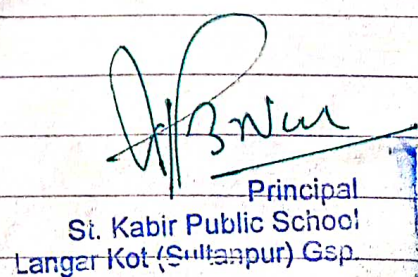 Principal
St. Kabir Public School
Langar Kot (Sultanpur) Gsp.